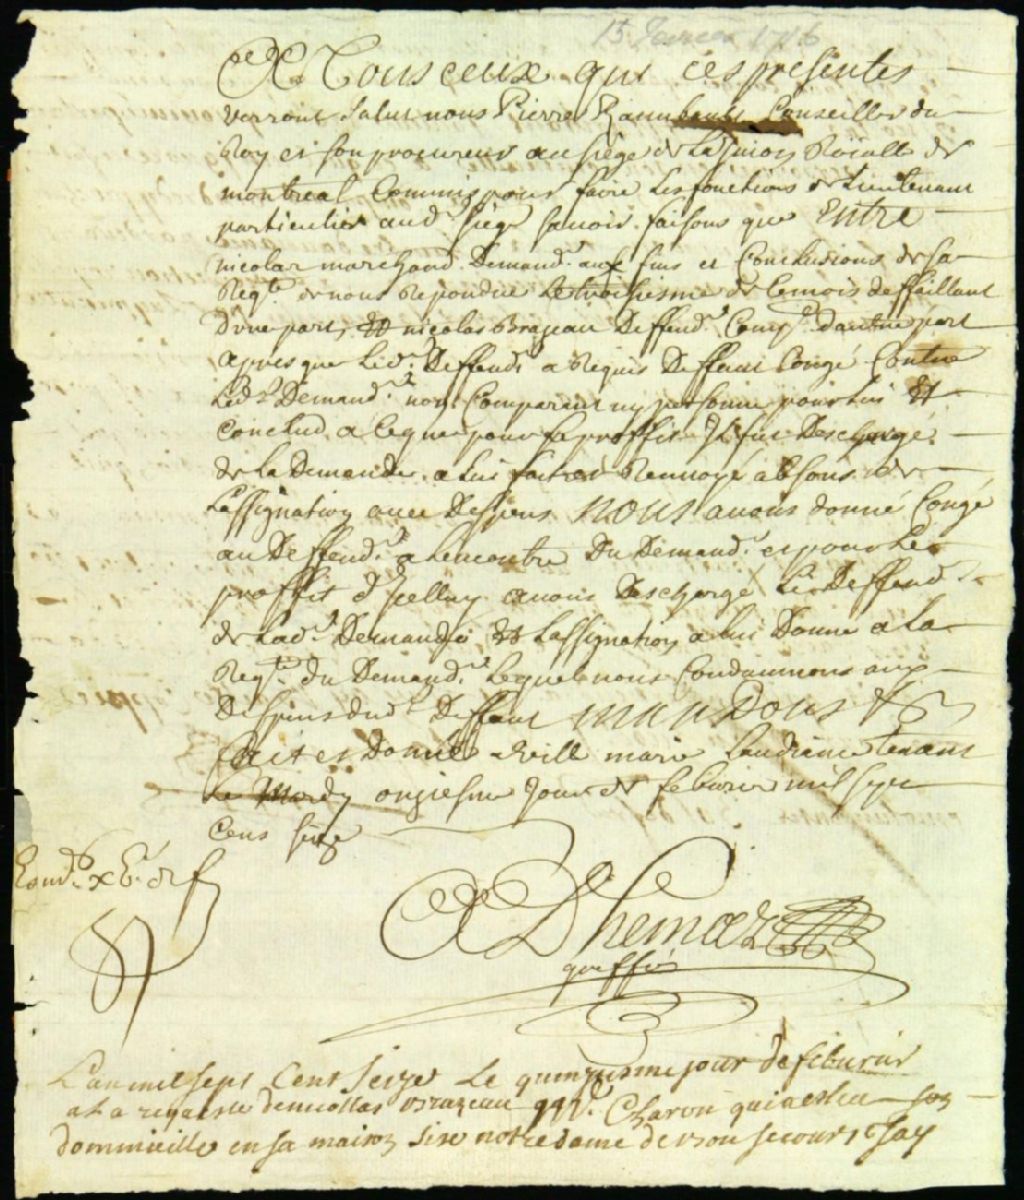 15 fevrier 1716
A Tous ceux qui ces presentes
verront salut nous Pierre Raimbault Conseiller du
Roy et son procureur au siege de la Juron Roialle de
montreal Commis pour faire les fonctions de Lieutenant
particulier aud. siege scavoir faisons que Entre
nicolas marchand Demandr. aux fins et Conclusions de sa
Reqte. de nous Repondue le troisiesme de ce mois deffaillant
dune part, Et nicolas Brazeau Deffendr. Compt. dautre part
apres que led. Deffendr a Requis Deffaut Congé Contre
Ledt. Demandr. non Comparant ny personne pour lui Et
Conclud. a ce que pour le proffit Il fut Deschargé
de la Demande a lui faite et Renvoyé absous de
Lassignation avec Despens nous avons donné Congé
au Deffendr. a lencontre Du Demandr. et pour le
proffit d'Icelluy avons Deschargé led. Deffendr
de lade. Demande Et Lassignation a lui Donné a la
Reqte. du Demandr. Lequel nous Condamnons aux
Despens dudt. Deffaut Mandons &
fait et Donné a ville marie Laudiance tenant
Le Mardy onziesme Jour de febvrier mil sept
cens seize
A Dhemar
greffier
L'an mil sept Cent Seize Le quinziesme jour de feburier
a la requeste de nicollas brazeau Charon qui a esleu son
dommicille en sa maison size nostre dame de bon secours Jay